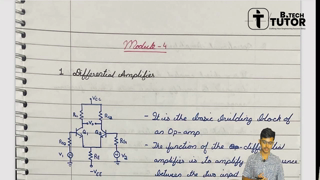 B.TECH
TUTOR
Module-4
1 Differential Amplifier
+VCC
- It is the basic building block
of an Op-amp
- The function of the differential
amplifier is to amplify
between the two input
-VEE